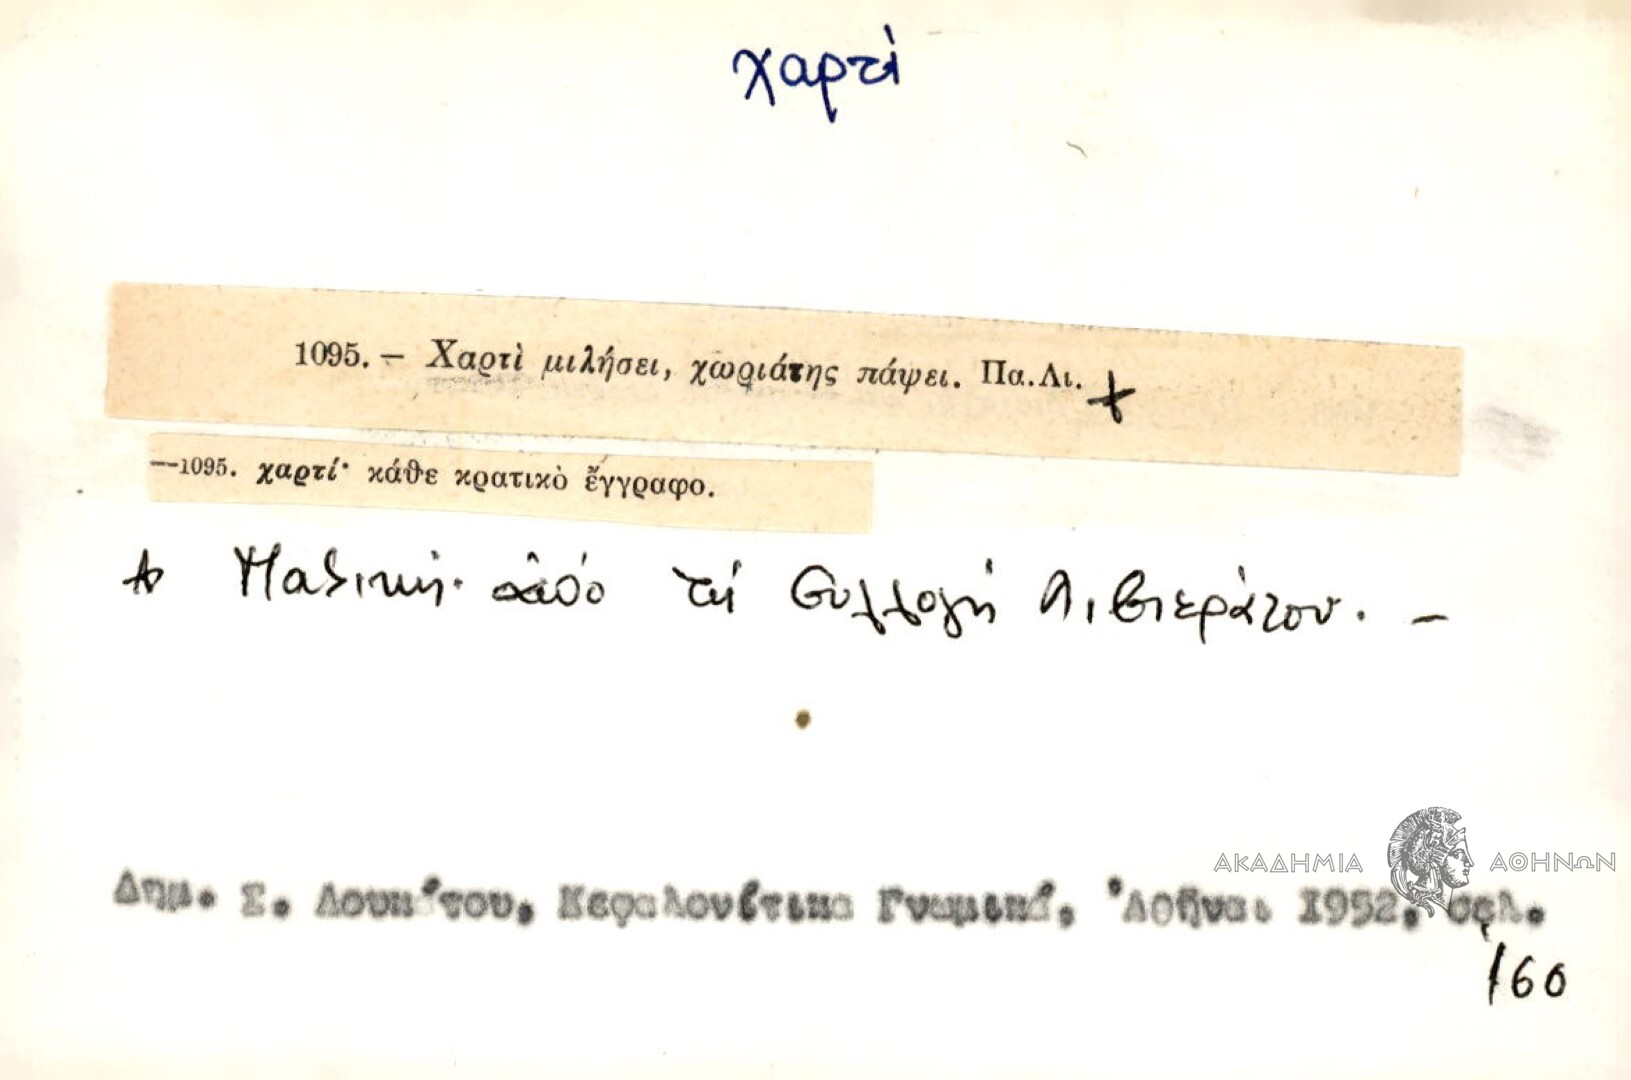 χαρτὶ
1095. — Χαρτὶ μιλήσει, χωριάτης πάψει. Πα.Λι. +
—1095. χαρτί· κάθε κρατικὸ ἔγγραφο.
ἀπό τή Συλλογή Λιβιεράτου. —
ΑΚΑΔΗΜΙΑ ΑΘΗΝΩΝ
Δημ. Σ. Λουκάτου, Κεφαλονίτικα Γνωμικά, Ἀθῆναι 1952, σελ.
160